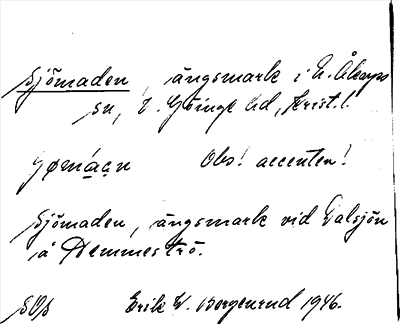 Sjömaden, ängsmark i N. Åkarps
sn, V. Göinge hd, Krist. l.
Obs! accenten!
Sjömaden, ängsmark vid Dalsjön
å Hemmeströ.
Erik W. Borgenrud 1946.